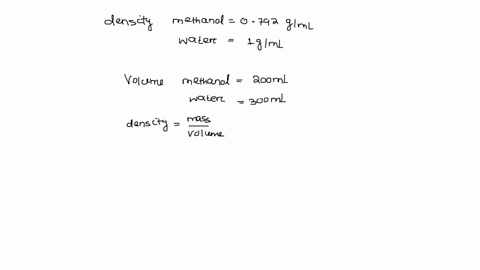 density methanol = 0.792 g/mL
water = 1g/mL
Volume methanol = 200mL
water = 300mL
density = mass/volume